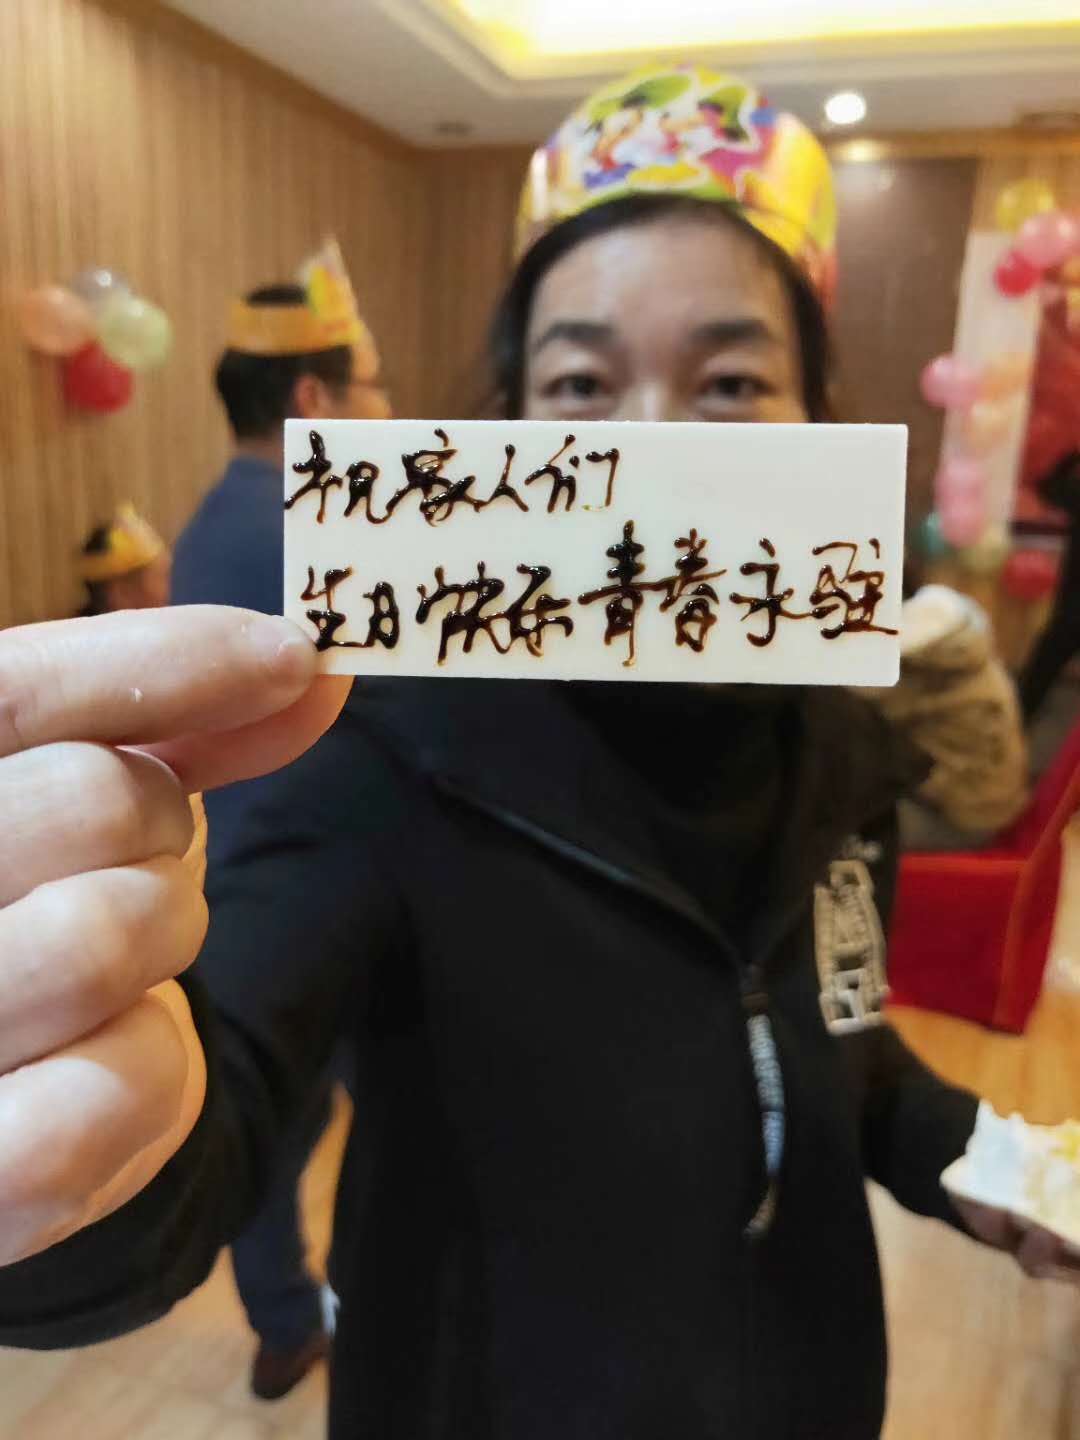 祝家人们
生日快乐青春永驻